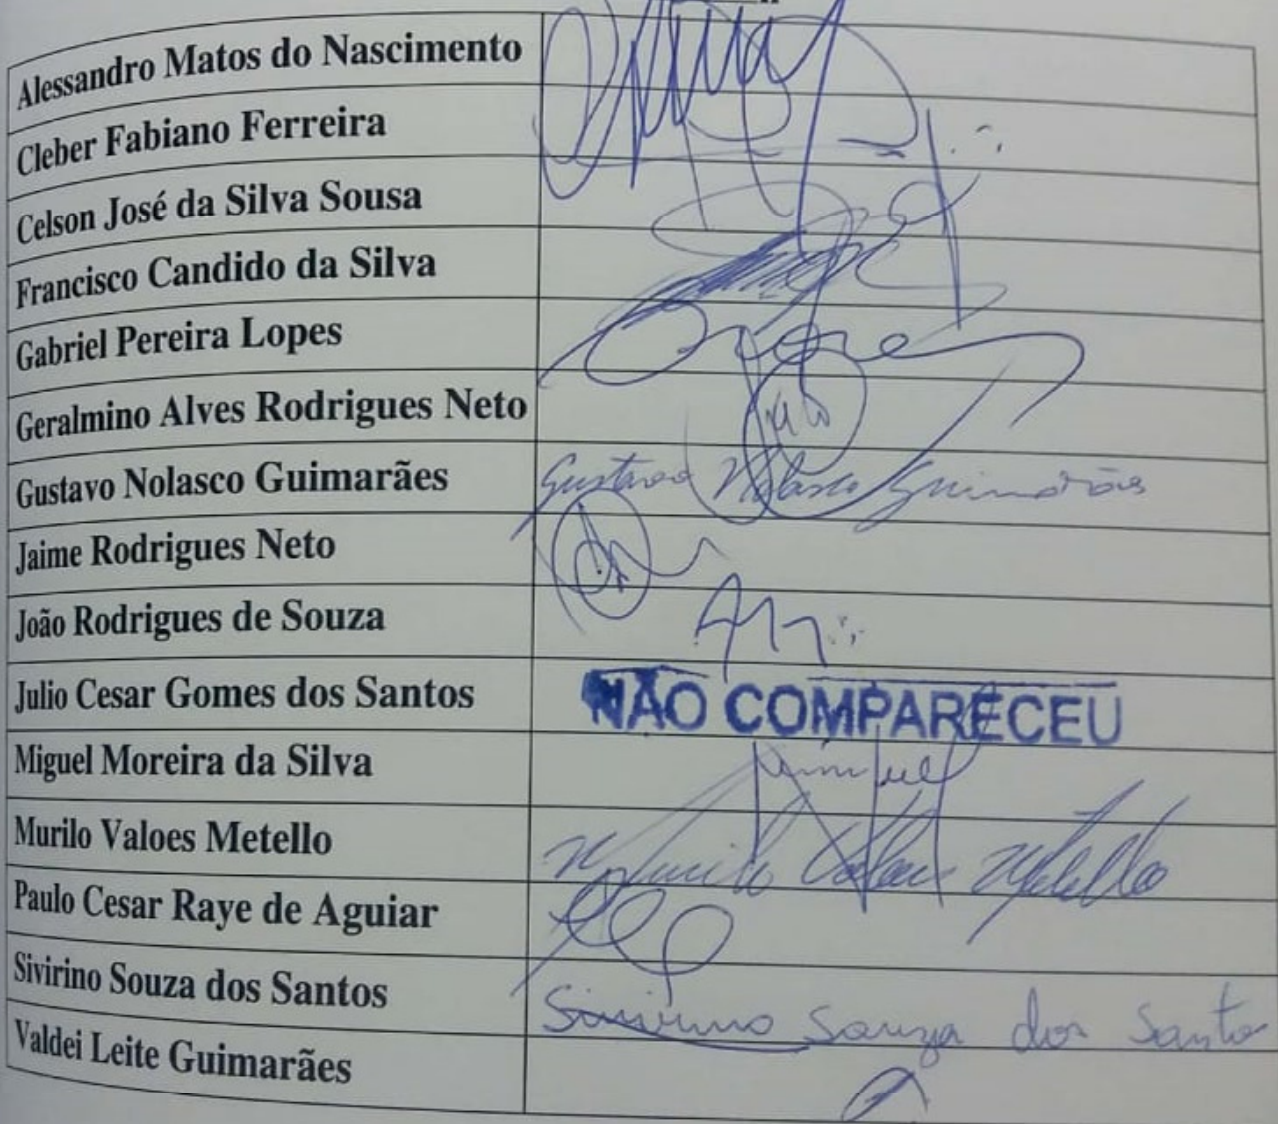 Alessandro Matos do Nascimento
Cleber Fabiano Ferreira
Celson José da Silva Sousa
Francisco Candido da Silva
Gabriel Pereira Lopes
Geralmino Alves Rodrigues Neto
Gustavo Nolasco Guimarães Gustavo Nolasco Guimarães
Jaime Rodrigues Neto
João Rodrigues de Souza
Julio Cesar Gomes dos Santos NÃO COMPARECEU
Miguel Moreira da Silva
Murilo Valoes Metello Murilo Valoes Metello
Paulo Cesar Raye de Aguiar
Sivirino Souza dos Santos Sivirino Souza dos Santo
Valdei Leite Guimarães